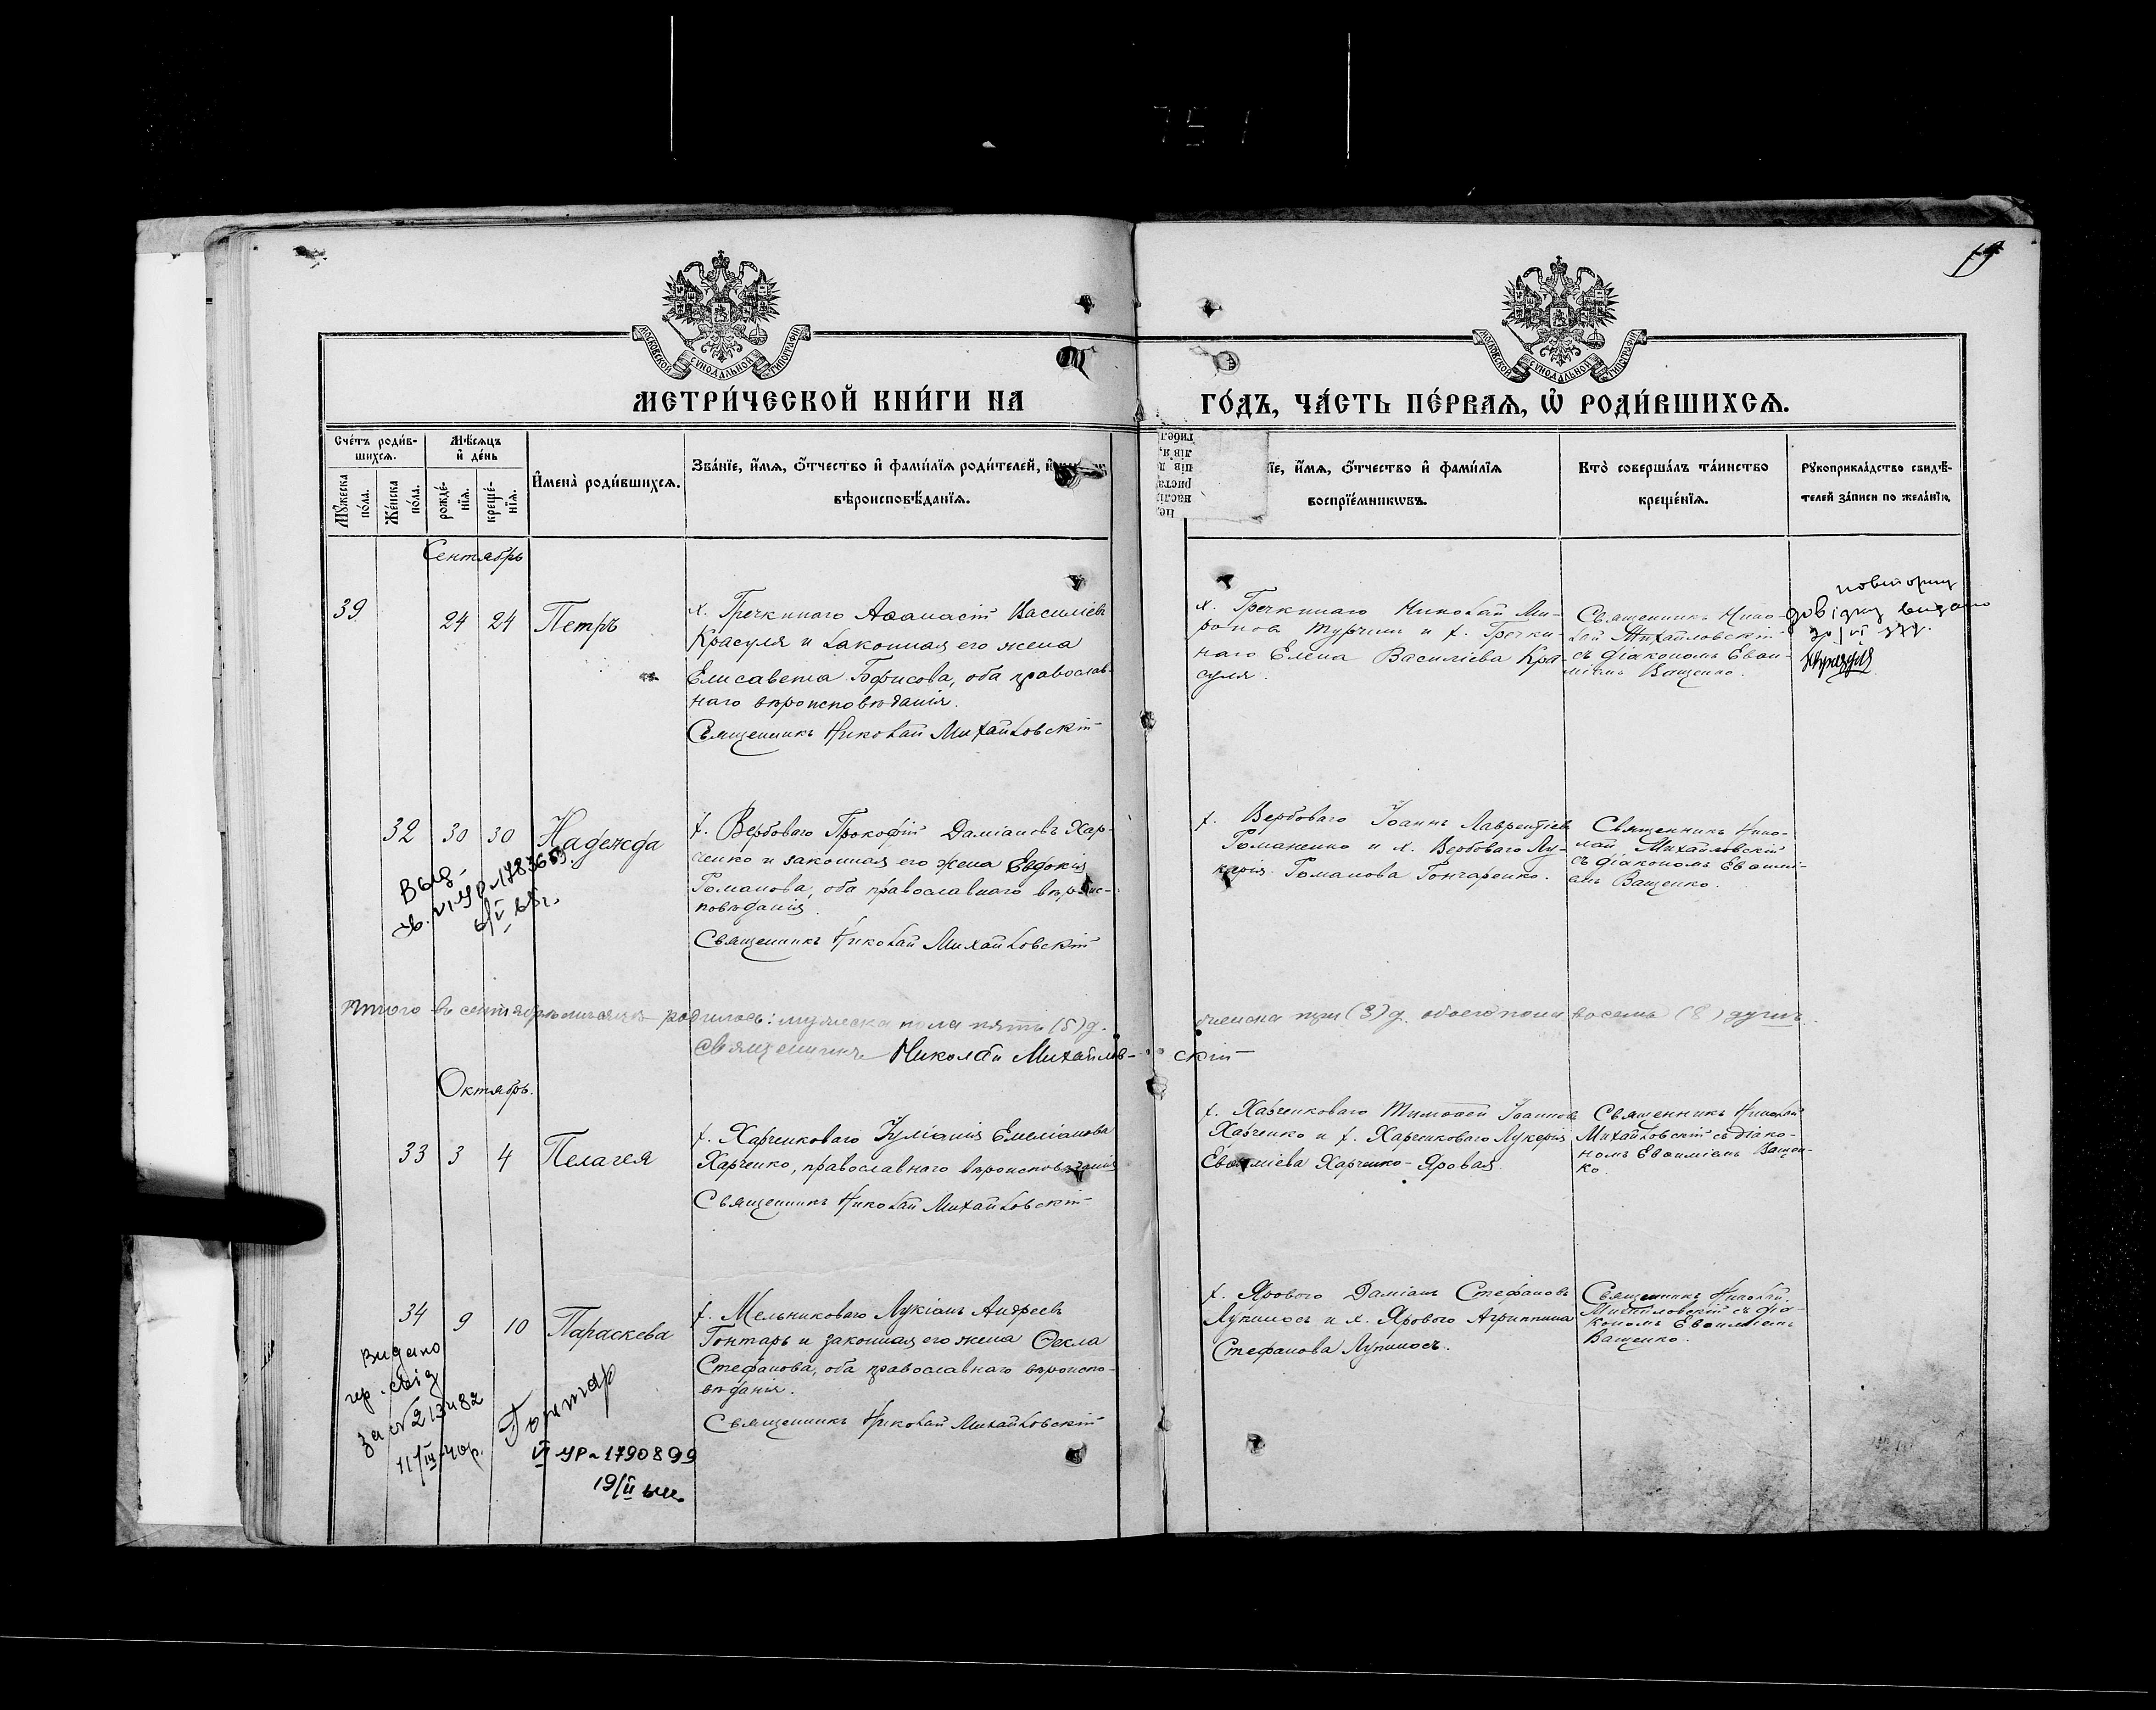 751
19
МОСКОВСКОЙ СѴНОДАЛЬНОЙ ТИПОГРАФІИ
МОСКОВСКОЙ СѴНОДАЛЬНОЙ ТИПОГРАФІИ
МЕТРИ́ЧЕСКОЙ КНИ́ГИ НА
ГО́ДЪ, ЧА́СТЬ ПЕ́РВАЯ, Ѡ РОДИ́ВШИХСЯ.
Сче́тъ роди́в-
шихся.
Мѣ́сяцъ
и де́нь
Мꙋ́жеска
по́ла.
Же́нска
по́ла.
рожде́-
нія.
креще́-
нія.
Имена̀ роди́вшихся.
Зва́нїе, и́мя, о́тчество и фами́лїя роди́телей, и
вѣроисповѣ́данїя.
їе, и́мя, о́тчество и фами́лїя
воспрїе́мникѡвъ.
Кто̀ соверша́лъ та́инство
креще́нїя.
Рꙋкоприкла́дство свидѣ́-
телей за́писи по жела́нїю.
Сентябрь
39
24 24
Петръ
х. Гречкинаго Аѳанасій Василіевъ
Красуля и законная его жена
Елисавета Борисова, оба православ-
наго вѣроисповѣданія.
Священникъ Николай Михайловскій
х. Гречкинаго Николай Ми-
роновъ Турчинъ и х. Гречки-
наго Елена Василіева Кра-
суля.
Священникъ Нико-
лай Михайловскій
съ діакономъ Евѳи-
міемъ Ващенко.
довідку видано
32 30 30
Надежда
х. Вербоваго Прокофій Даміановъ Хар-
ченко и законная его жена Евдокія
Романова, оба православнаго вѣроис-
повѣданія.
Священникъ Николай Михайловскій
х. Вербоваго Іоаннъ Лаврентіевъ
Романенко и х. Вербоваго Лу-
керія Романова Гончаренко.
Священникъ Нико-
лай Михайловскій
съ діакономъ Евѳимі-
емъ Ващенко.
Итого въ сентябрѣ мѣсяцѣ родилось: мужеска пола пять (5) д.
женска три (3) д. обоего пола восемь (8) душъ.
Священникъ Николай Михайлов-скій
Октябрь.
33 3 4
Пелагея
х. Харченковаго Іуліанія Емеліанова
Харченко, православнаго вѣроисповѣданія
Священникъ Николай Михайловскій
х. Харченковаго Тимоѳей Іоанновъ
Харченко и х. Харченковаго Лукерія
Евѳиміева Харченко-Яровая.
Священникъ Николай
Михайловскій съ діако-
номъ Евѳиміемъ Ващен-
ко.
34 9 10
Параскева
х. Мельниковаго Лукіанъ Андреевъ
Гонтарь и законная его жена Ѳекла
Стефанова, оба православнаго вѣроиспо-
вѣданія.
Священникъ Николай Михайловскій
х. Яроваго Даміанъ Стефановъ
Лупиносъ и х. Яроваго Агриппина
Стефанова Лупиносъ.
Священникъ Николай
Михайловскій съ діа-
кономъ Евѳиміемъ
Ващенко.
Видано
за № 213482
Гонтар
VI УР~1790899